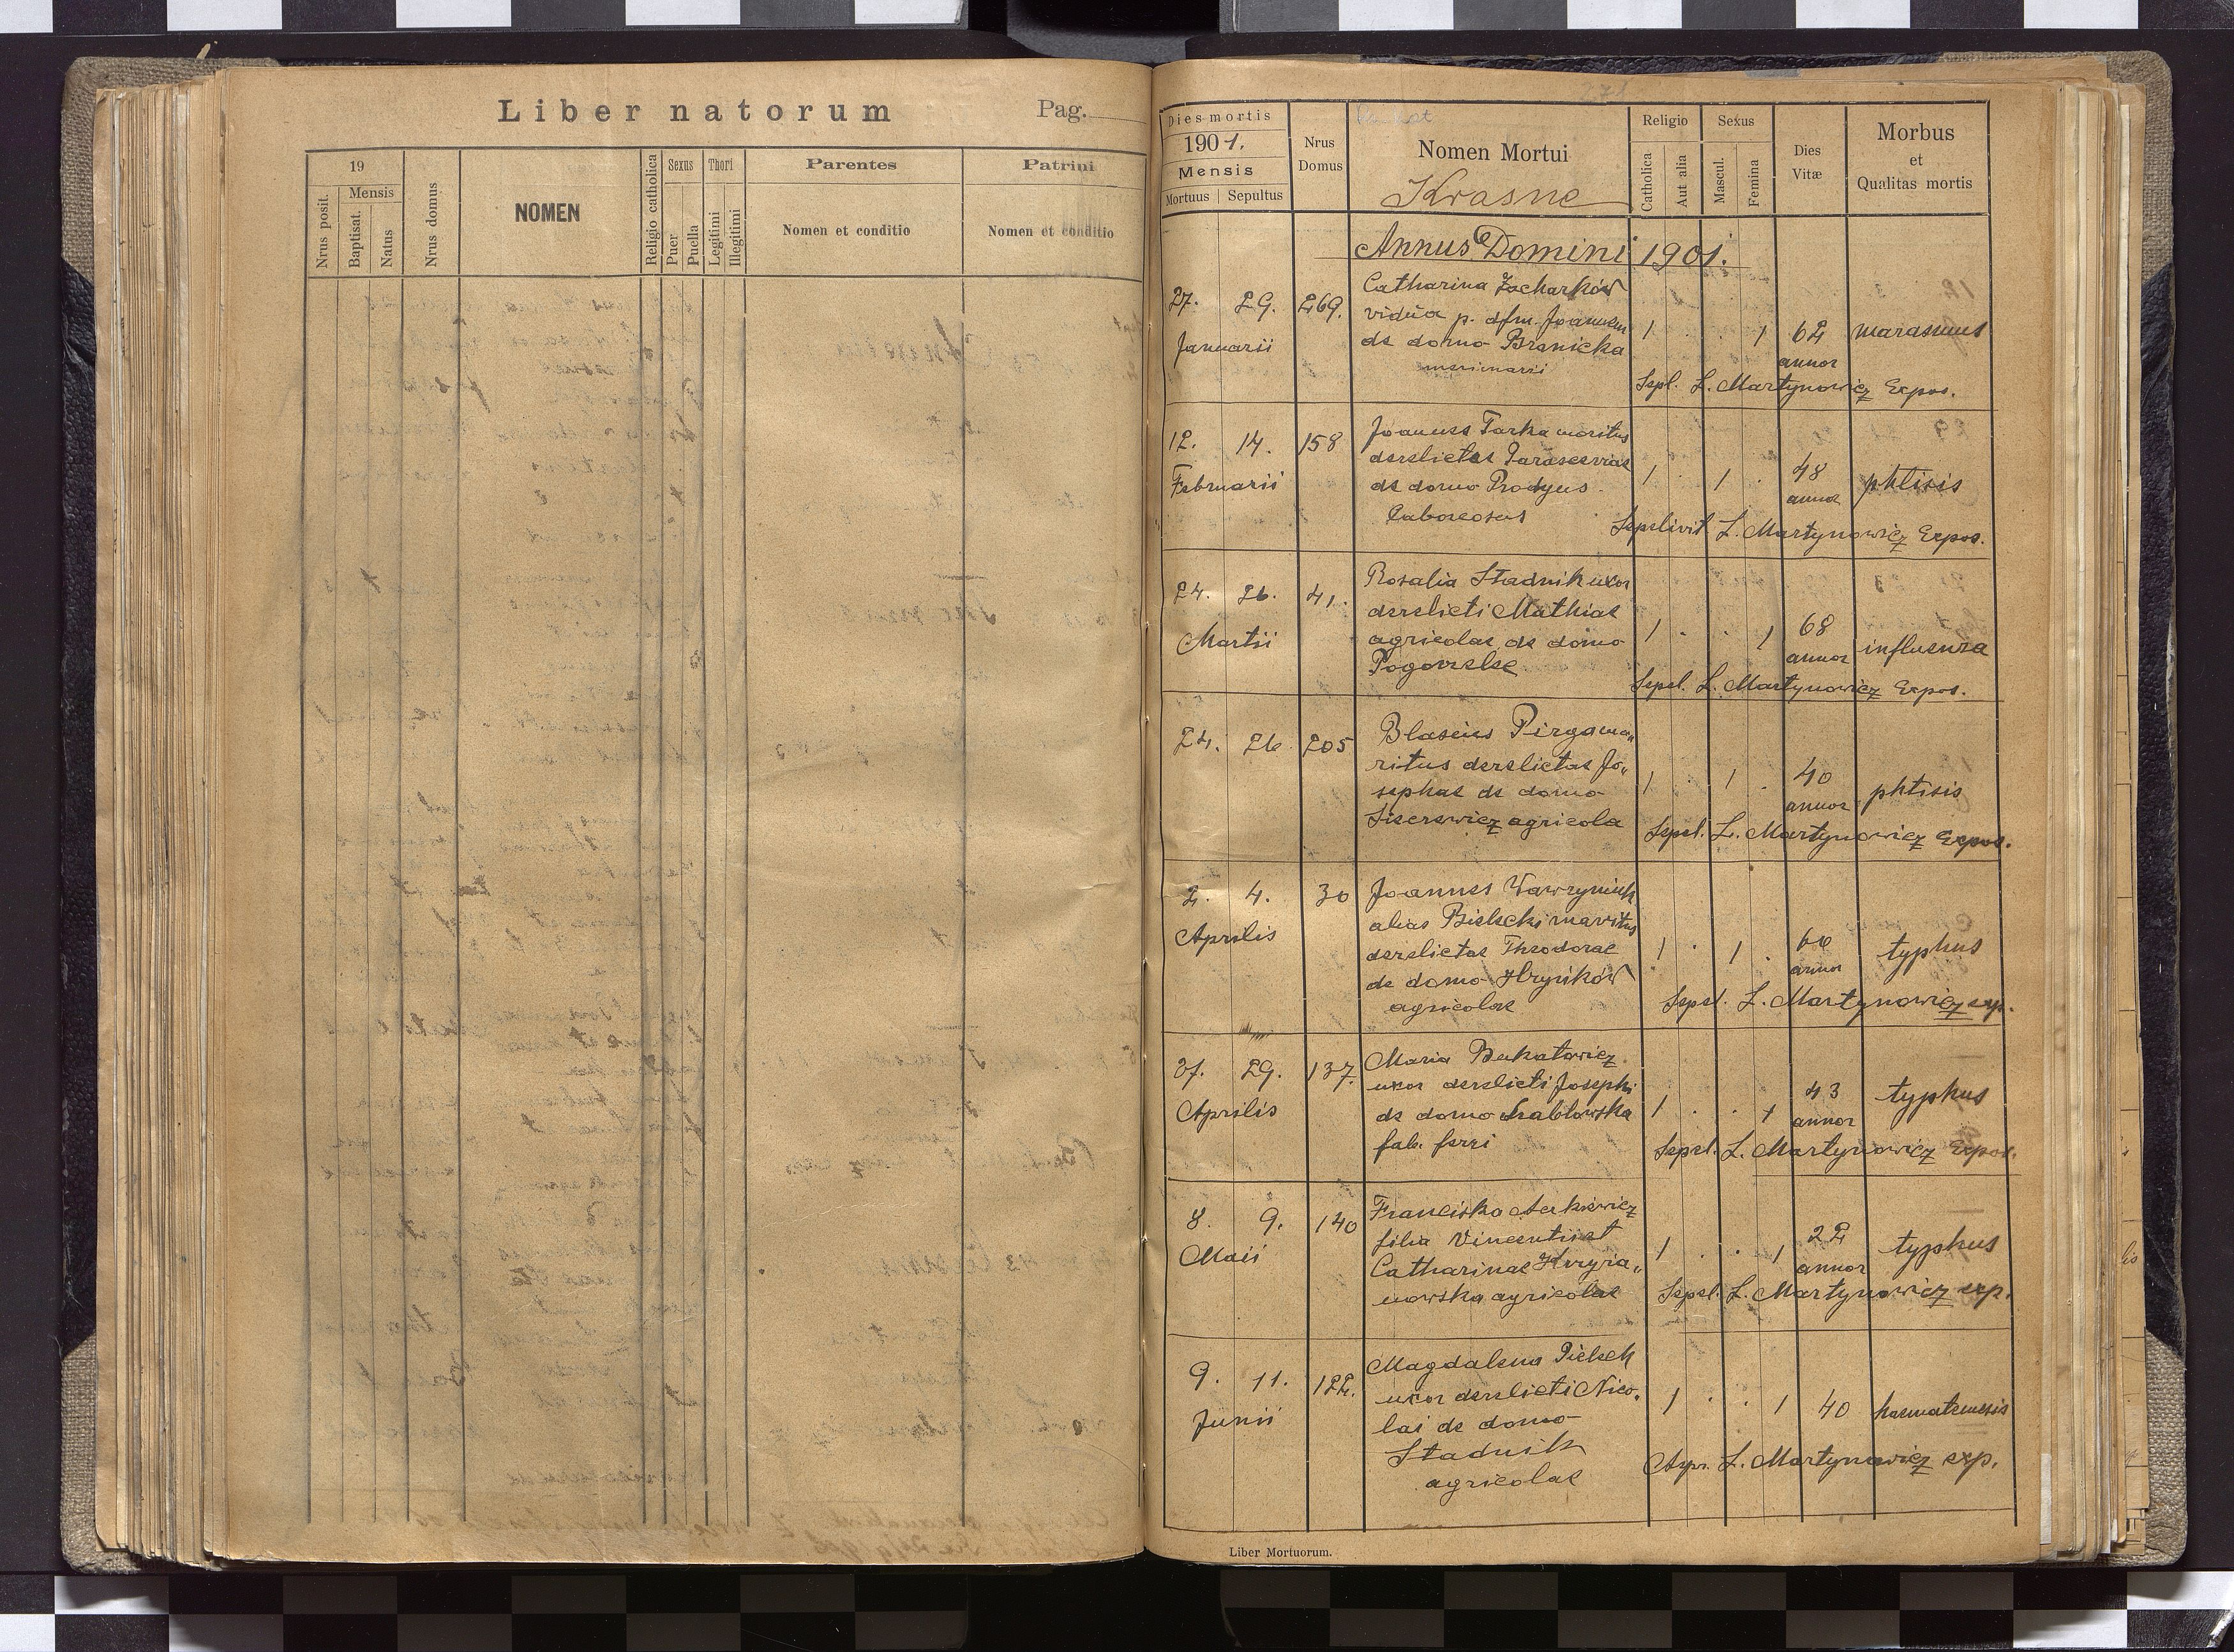 Liber natorum
Pag.
19
Nrus posit.
Mensis
Baptisat.
Natus
Nrus domus
NOMEN
Religio catholica
Sexus
Puer
Puella
Thori
Legitimi
Illegitimi
Parentes
Nomen et conditio
Patrini
Nomen et conditio
Dies mortis
1901.
Mensis
Mortuus
Sepultus
Nrus
Domus
Nomen Mortui
Krasne
Religio
Catholica
Aut alia
Sexus
Mascul.
Femina
Dies
Vitæ
Morbus
et
Qualitas mortis
Annus Domini 1901.
27. 29. 269.
Januarii
Catharina Zacharków
vidua p. dfm. Joannem
de domo Branicka
1 . . 1 62 marasmus
annor
Sepl. L. Martynowicz Expos.
12. 14. 158
Februarii
Joannes Tarka maritus
derelictae Parascevias
de domo Prodyus
Laboriosus
1 . 1 . 48 phtisis
annor
Sepelivit L. Martynowicz Expos.
24. 26. 41.
Martii
Rosalia Stadnik uxor
derelicti Mathiae
agricolae de domo
1 . . 1 68 influenza
annor
Sepel. L. Martynowicz Expos.
24. 26. 205
Blasius Pirga ma„
ritus derelictae Jo„
sephae de domo
agricola
1 . 1 . 40 phtisis
annor
Sepel. L. Martynowicz Expos.
2. 4. 30
Aprilis
Joannes Wawryniuk
alias Bielecki maritus
derelictae Theodorae
de domo Hryńków
agricolae
1 . 1 . 60 typhus
annor
Sepel. L. Martynowicz exp.
27. 29. 137.
Aprilis
Maria Bukatowicz
uxor derelicti Josephi
de domo
fab. ferri
1 . . 1 43 typhus
annor
Sepel. L. Martynowicz Expos.
8. 9. 140
Maii
Franciska
filia Vincentii et
Catharinae Hrynia„
nowska agricolae
1 . . 1 22 typhus
annor
Sepel. L. Martynowicz exp.
9. 11. 122.
Junii
Magdalena Pielech
uxor derelicti Nico„
lai de domo
Stadnik
agricolae
1 . . 1 40 haematemesis
L. Martynowicz exp.
Liber Mortuorum.